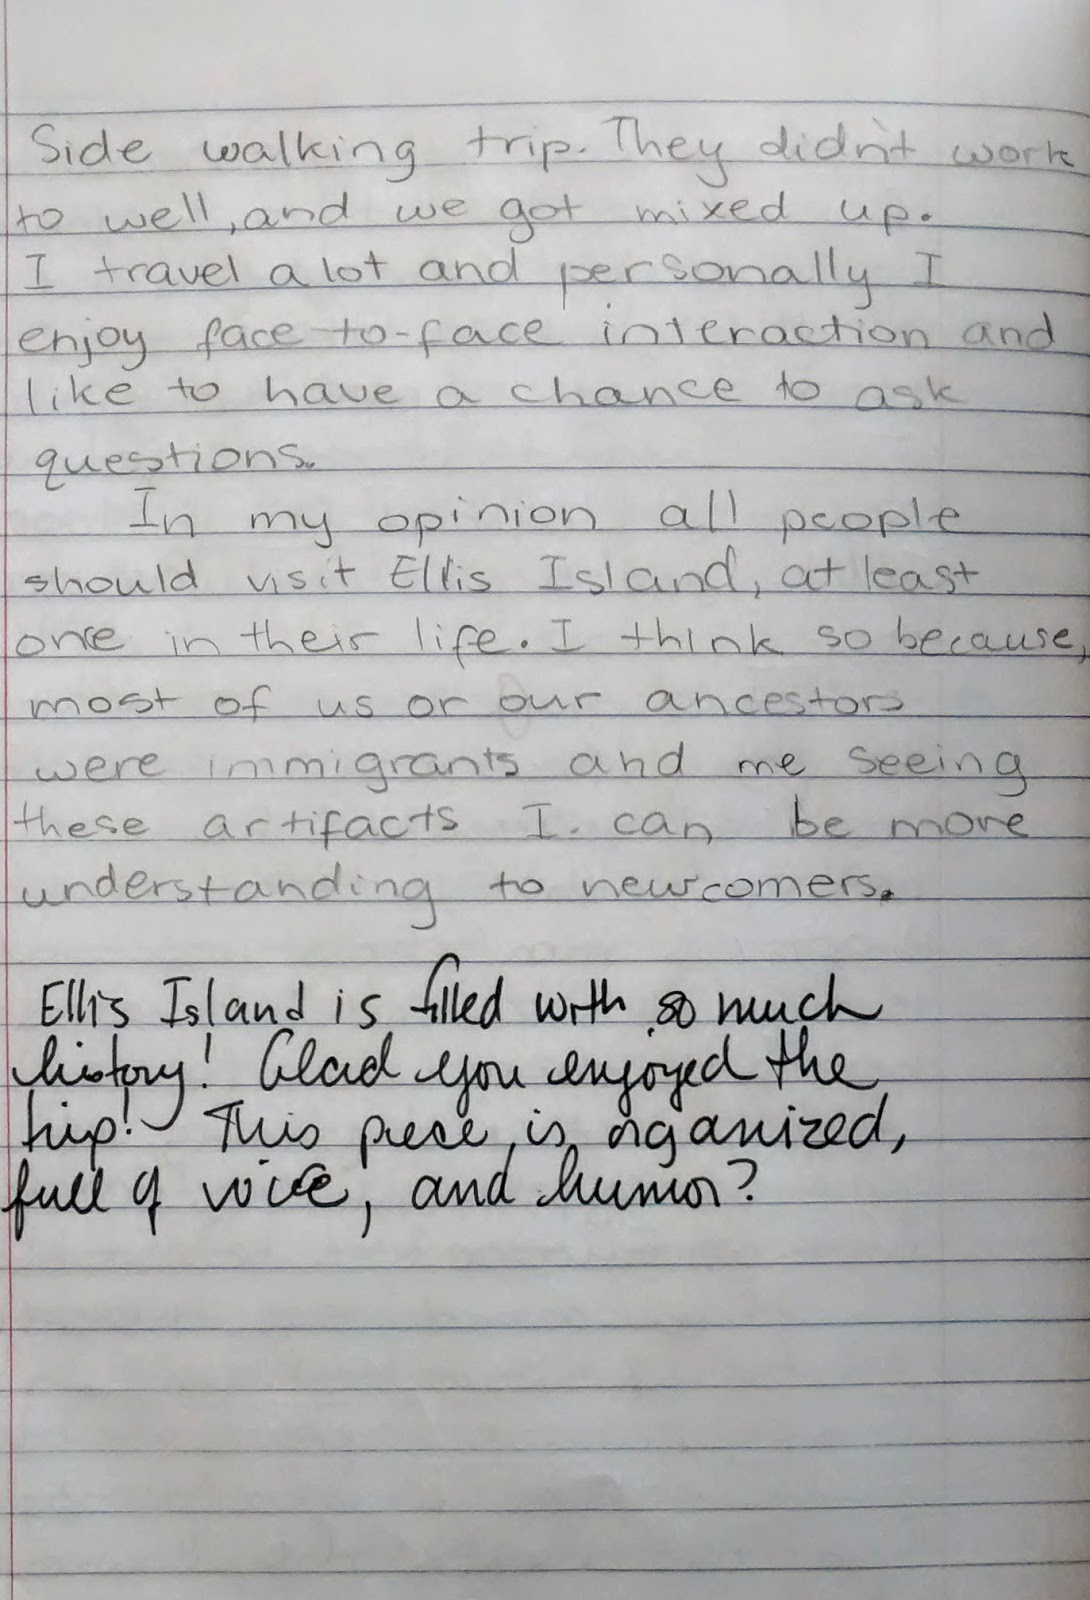 Side walking trip. They didn't work
to well, and we got mixed up.
I travel a lot and personally I
enjoy face-to-face interaction and
like to have a chance to ask
questions.
In my opinion all people
should visit Ellis Island, at least
one in their life. I think so because,
most of us or our ancestors
were immigrants and me seeing
these artifacts I can be more
understanding to newcomers.
Ellis Island is filled with so much
history! Glad you enjoyed the
trip! This piece is organized,
full of voice, and humor?